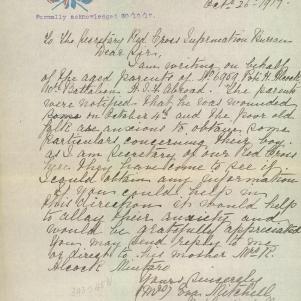 Oct 26 - 1917.
Formally acknowledged 30/10/17.
To The Secretary Red Cross Information Bureau
Dear Sir,
I am writing on behalf
of the aged parents of No 6969 Pte H.
Battalion A.I.F. Abroad. The parents
were notified that he was wounded
on October 4th and the poor old
folk are anxious to obtain some
particulars concerning their boy.
as I am Secretary of our Red Cross
here they have come to see if
I could obtain any information
If you could help in
this direction it would help
to allay their anxiety and
would be gratefully appreciated
You may send reply to me
or direct to his mother Mrs R.
Alcock
Yours Sincerely
Mitchell